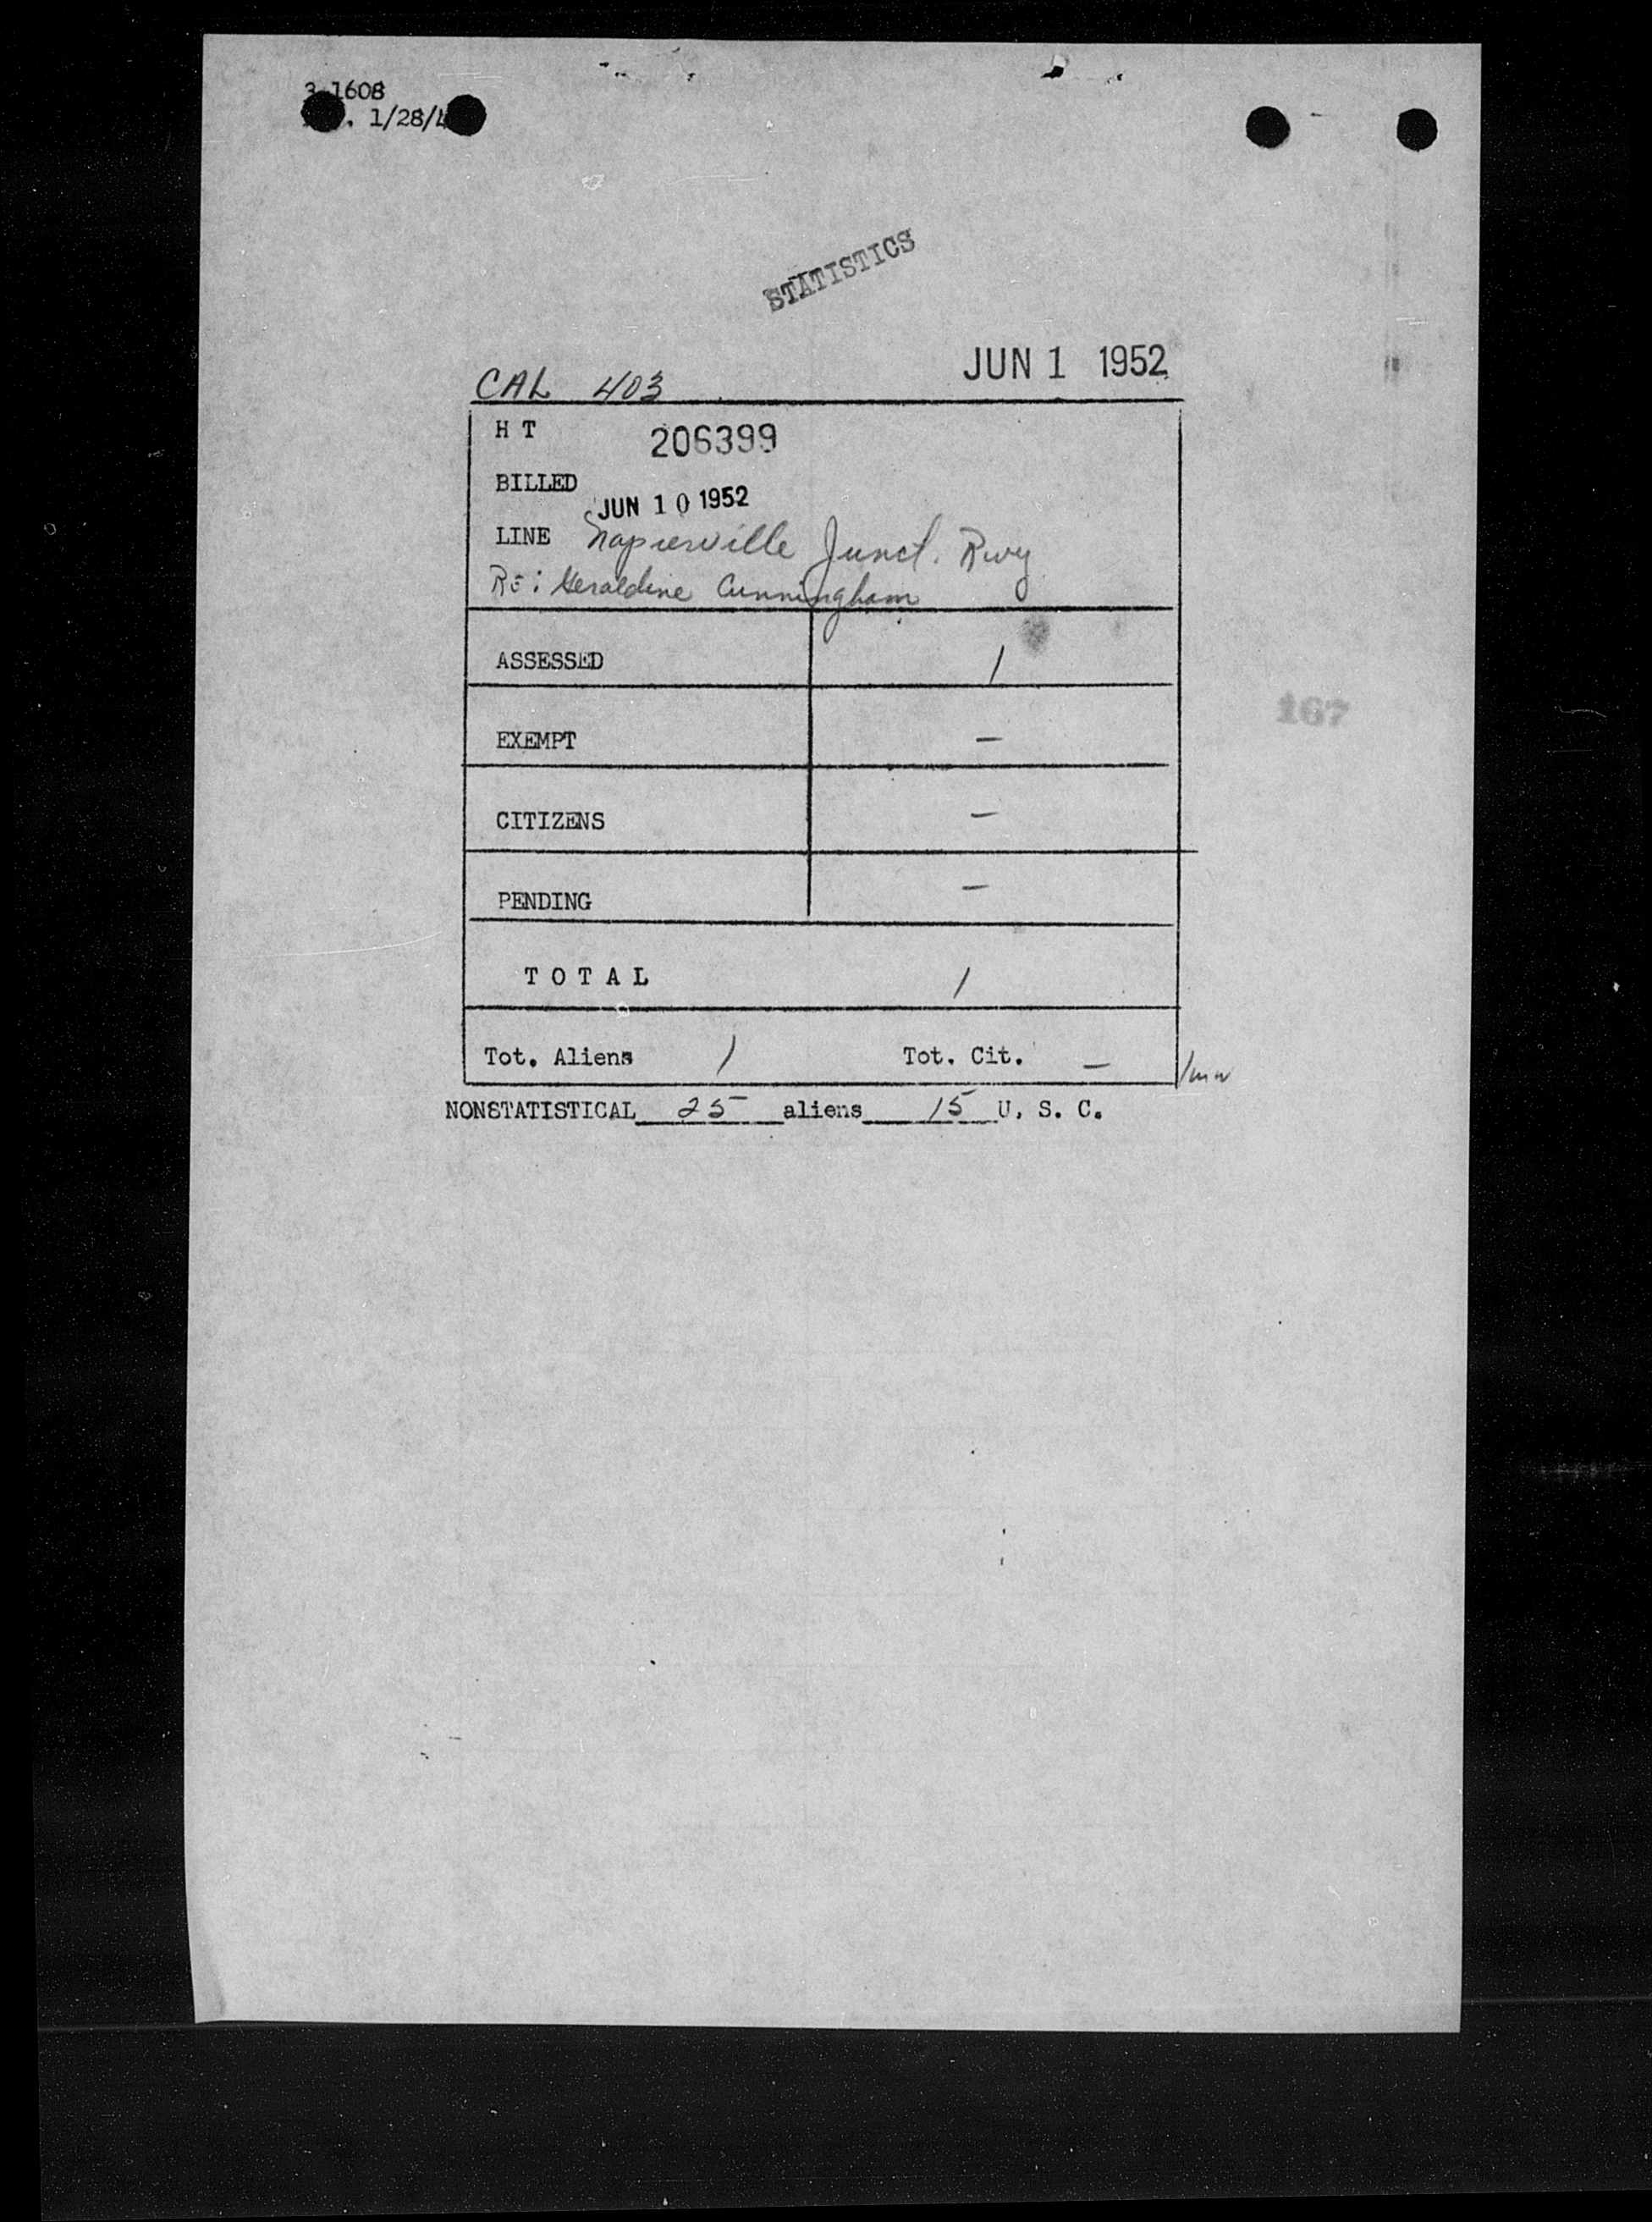 3-1608
. 1/28/4
STATISTICS
CAL 403 JUN 1 1952
H T 206399
BILLED JUN 10 1952
LINE Napierville Junct. Rwy
RE: Geraldine Cunningham
ASSESSED 1
EXEMPT —
CITIZENS —
PENDING —
T O T A L 1
Tot. Aliens 1 Tot. Cit. —
NONSTATISTICAL 25 aliens 15 U. S. C.
167